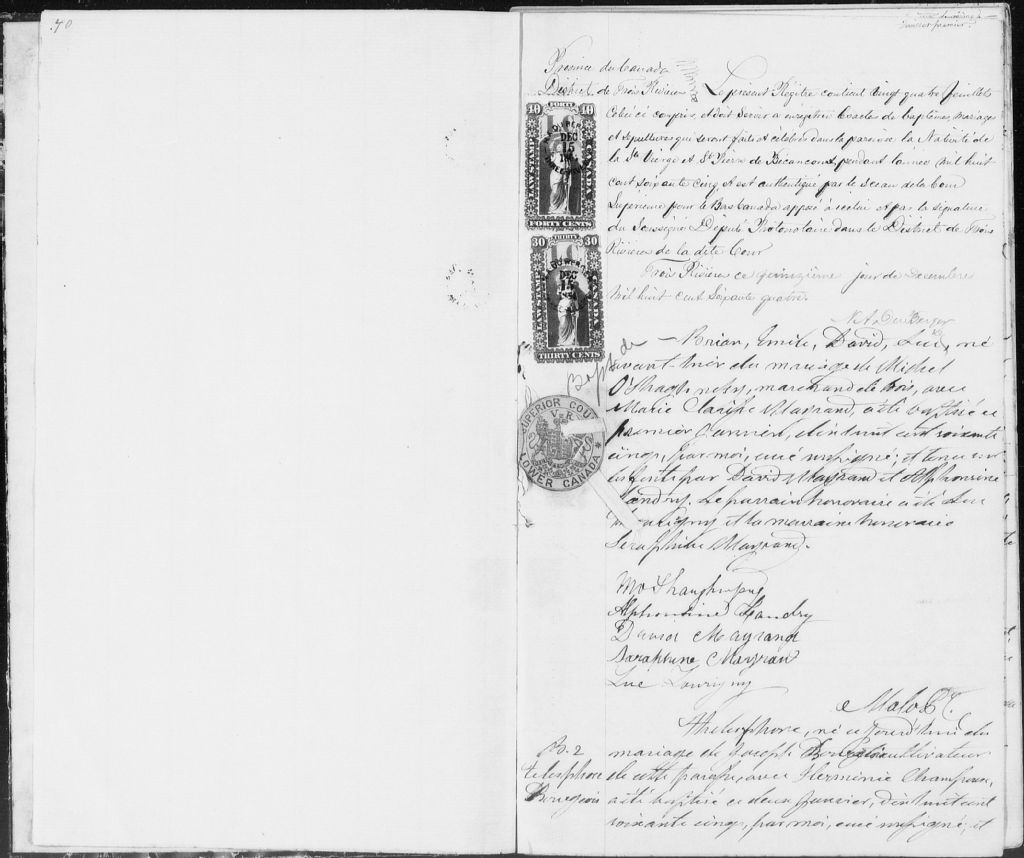 70
feuillet premier
Province du Canada
District de Trois Rivières Le présent Régistre contient vingt quatre feuillets
Celui ci compris, et doit servir à enregistrer les actes de baptêmes, mariages
et sépultures qui seront faits et célébrés dans la paroisse la Nativité de
la Ste Vierge et St Pierre de Bécancour, pendant l'année mil huit
cent soixante cinq et est authentiqué par le sceau de la Cour
Supérieure pour le Bas Canada apposé à icelui et par la signature
du Soussigné Député Protonotaire dans le District de Trois
Rivières de la dite Cour
Trois Rivières ce quinzième jour de Décembre
mil huit cent soixante quatre.
FORTY
40 40
SUPERIOR
DEC
15
1864
FORTY CENTS
THIRTY
30 30
DEC
15
1864
THIRTY CENTS
SUPERIOR COURT
V R
LOWER CANADA
Brian, Emile, David, Luc, né
avant hier du mariage de Michel
O'Shaughnessy, marchand de bois, avec
Marie Mayrand, a été baptisé ce
premier Janvier, dixhuit cent soixante
cinq, par moi, curé soussigné; et tenu sur
les fonts par David Mayrand et Alphonsine
Landry. Le parrain honoraire a été Luc
et la marraine honoraire
Séraphine Mayrand.
Mo Shaughnessy
Alphonsine Landry
David Mayrand
Saraphine Mayran
Luc Lourigny
Malo
B. 2
Telesphore
Bourgeois
Thelesphore, né aujourd'hui du
mariage de Joseph Bourgeois cultivateur
de cette paroisse, avec Herminie Champoux,
a été baptisé ce deux Janvier, dixhuit cent
soixante cinq, par moi, curé soussigné; et